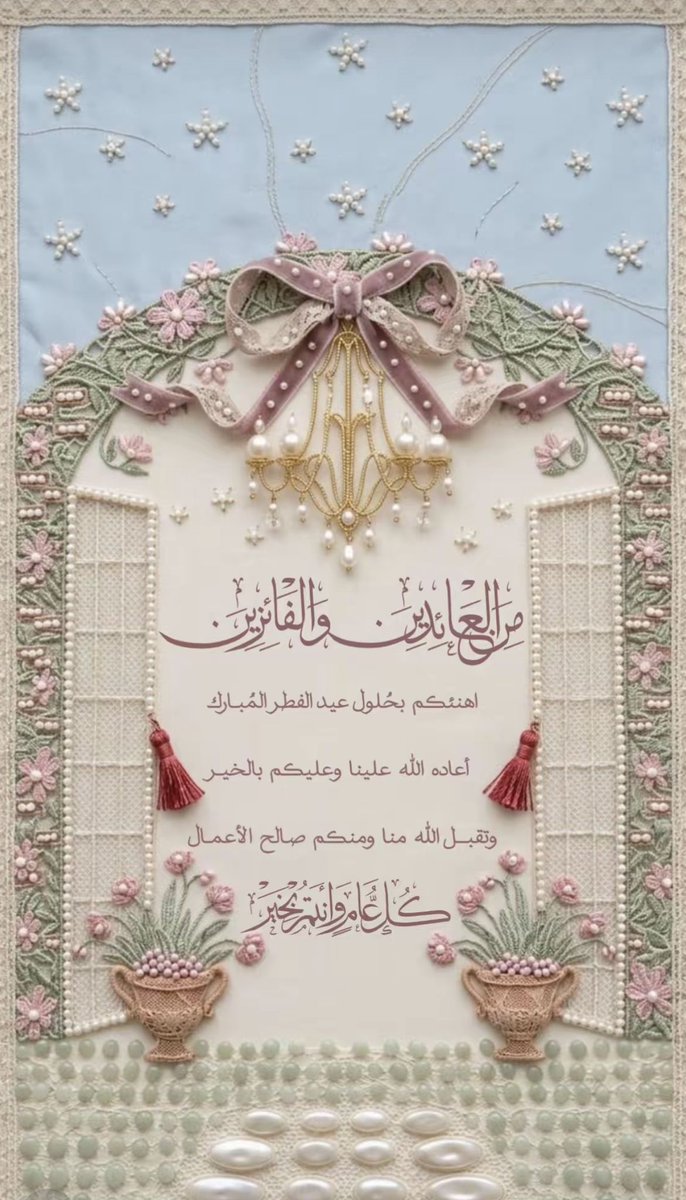 مِنَ العَائِدِين وَالفَائِزِين
اهنئكم بحُلول عيد الفطر المُبارك
أعاده الله علينا وعليكم بالخير
وتقبل الله منا ومنكم صالح الأعمال
كُل عَام وَانتم بخَير